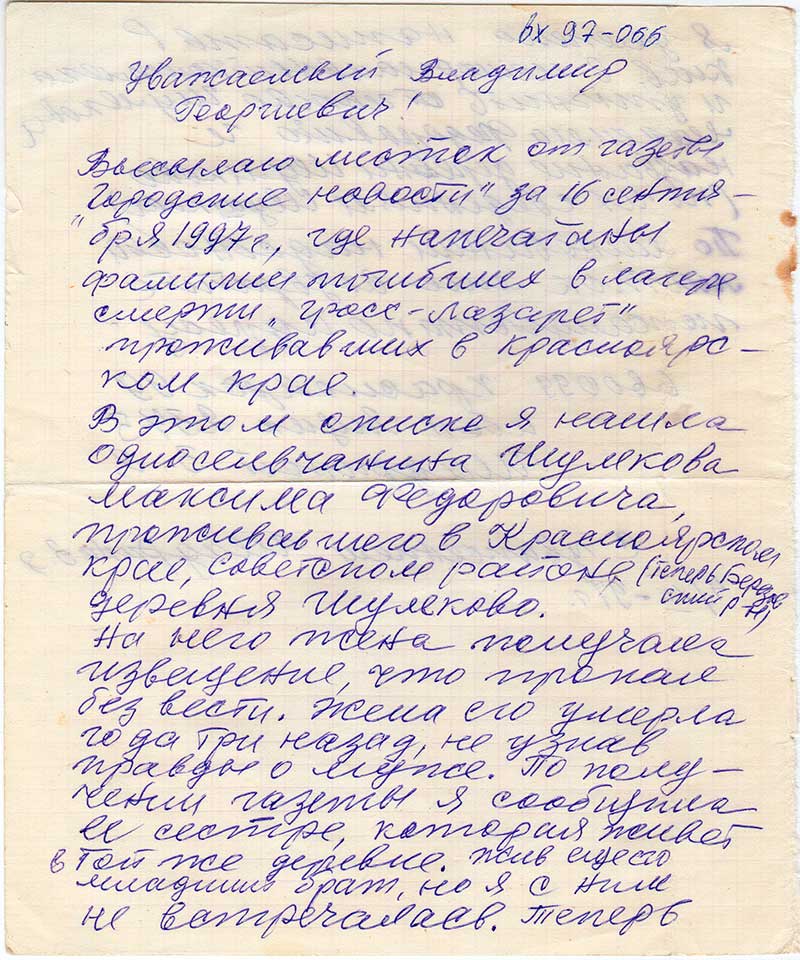 вх 97-066
Уважаемый Владимир
Георгиевич!
Высылаю листок от газеты
"Городские новости" за 16 сентя-
бря 1997 г., где напечатаны
фамилии погибших в лагере
смерти „Гросс-Лазарет"
проживавших в Красноярс-
ком крае.
В этом списке я нашла
односельчанина Шумкова
Максима Федоровича,
проживавшего в Красноярском
крае, Советском районе (теперь Березов
ский р-н)
деревня Шумково.
На него жена получала
извещение, что пропал
без вести. Жена его умерла
года три назад, не узнав
правды о муже. По полу-
чении газеты я сообщила
ее сестре, которая живет
в той же деревне. Жив еще его
младший брат, но я с ним
не встречалась. Теперь